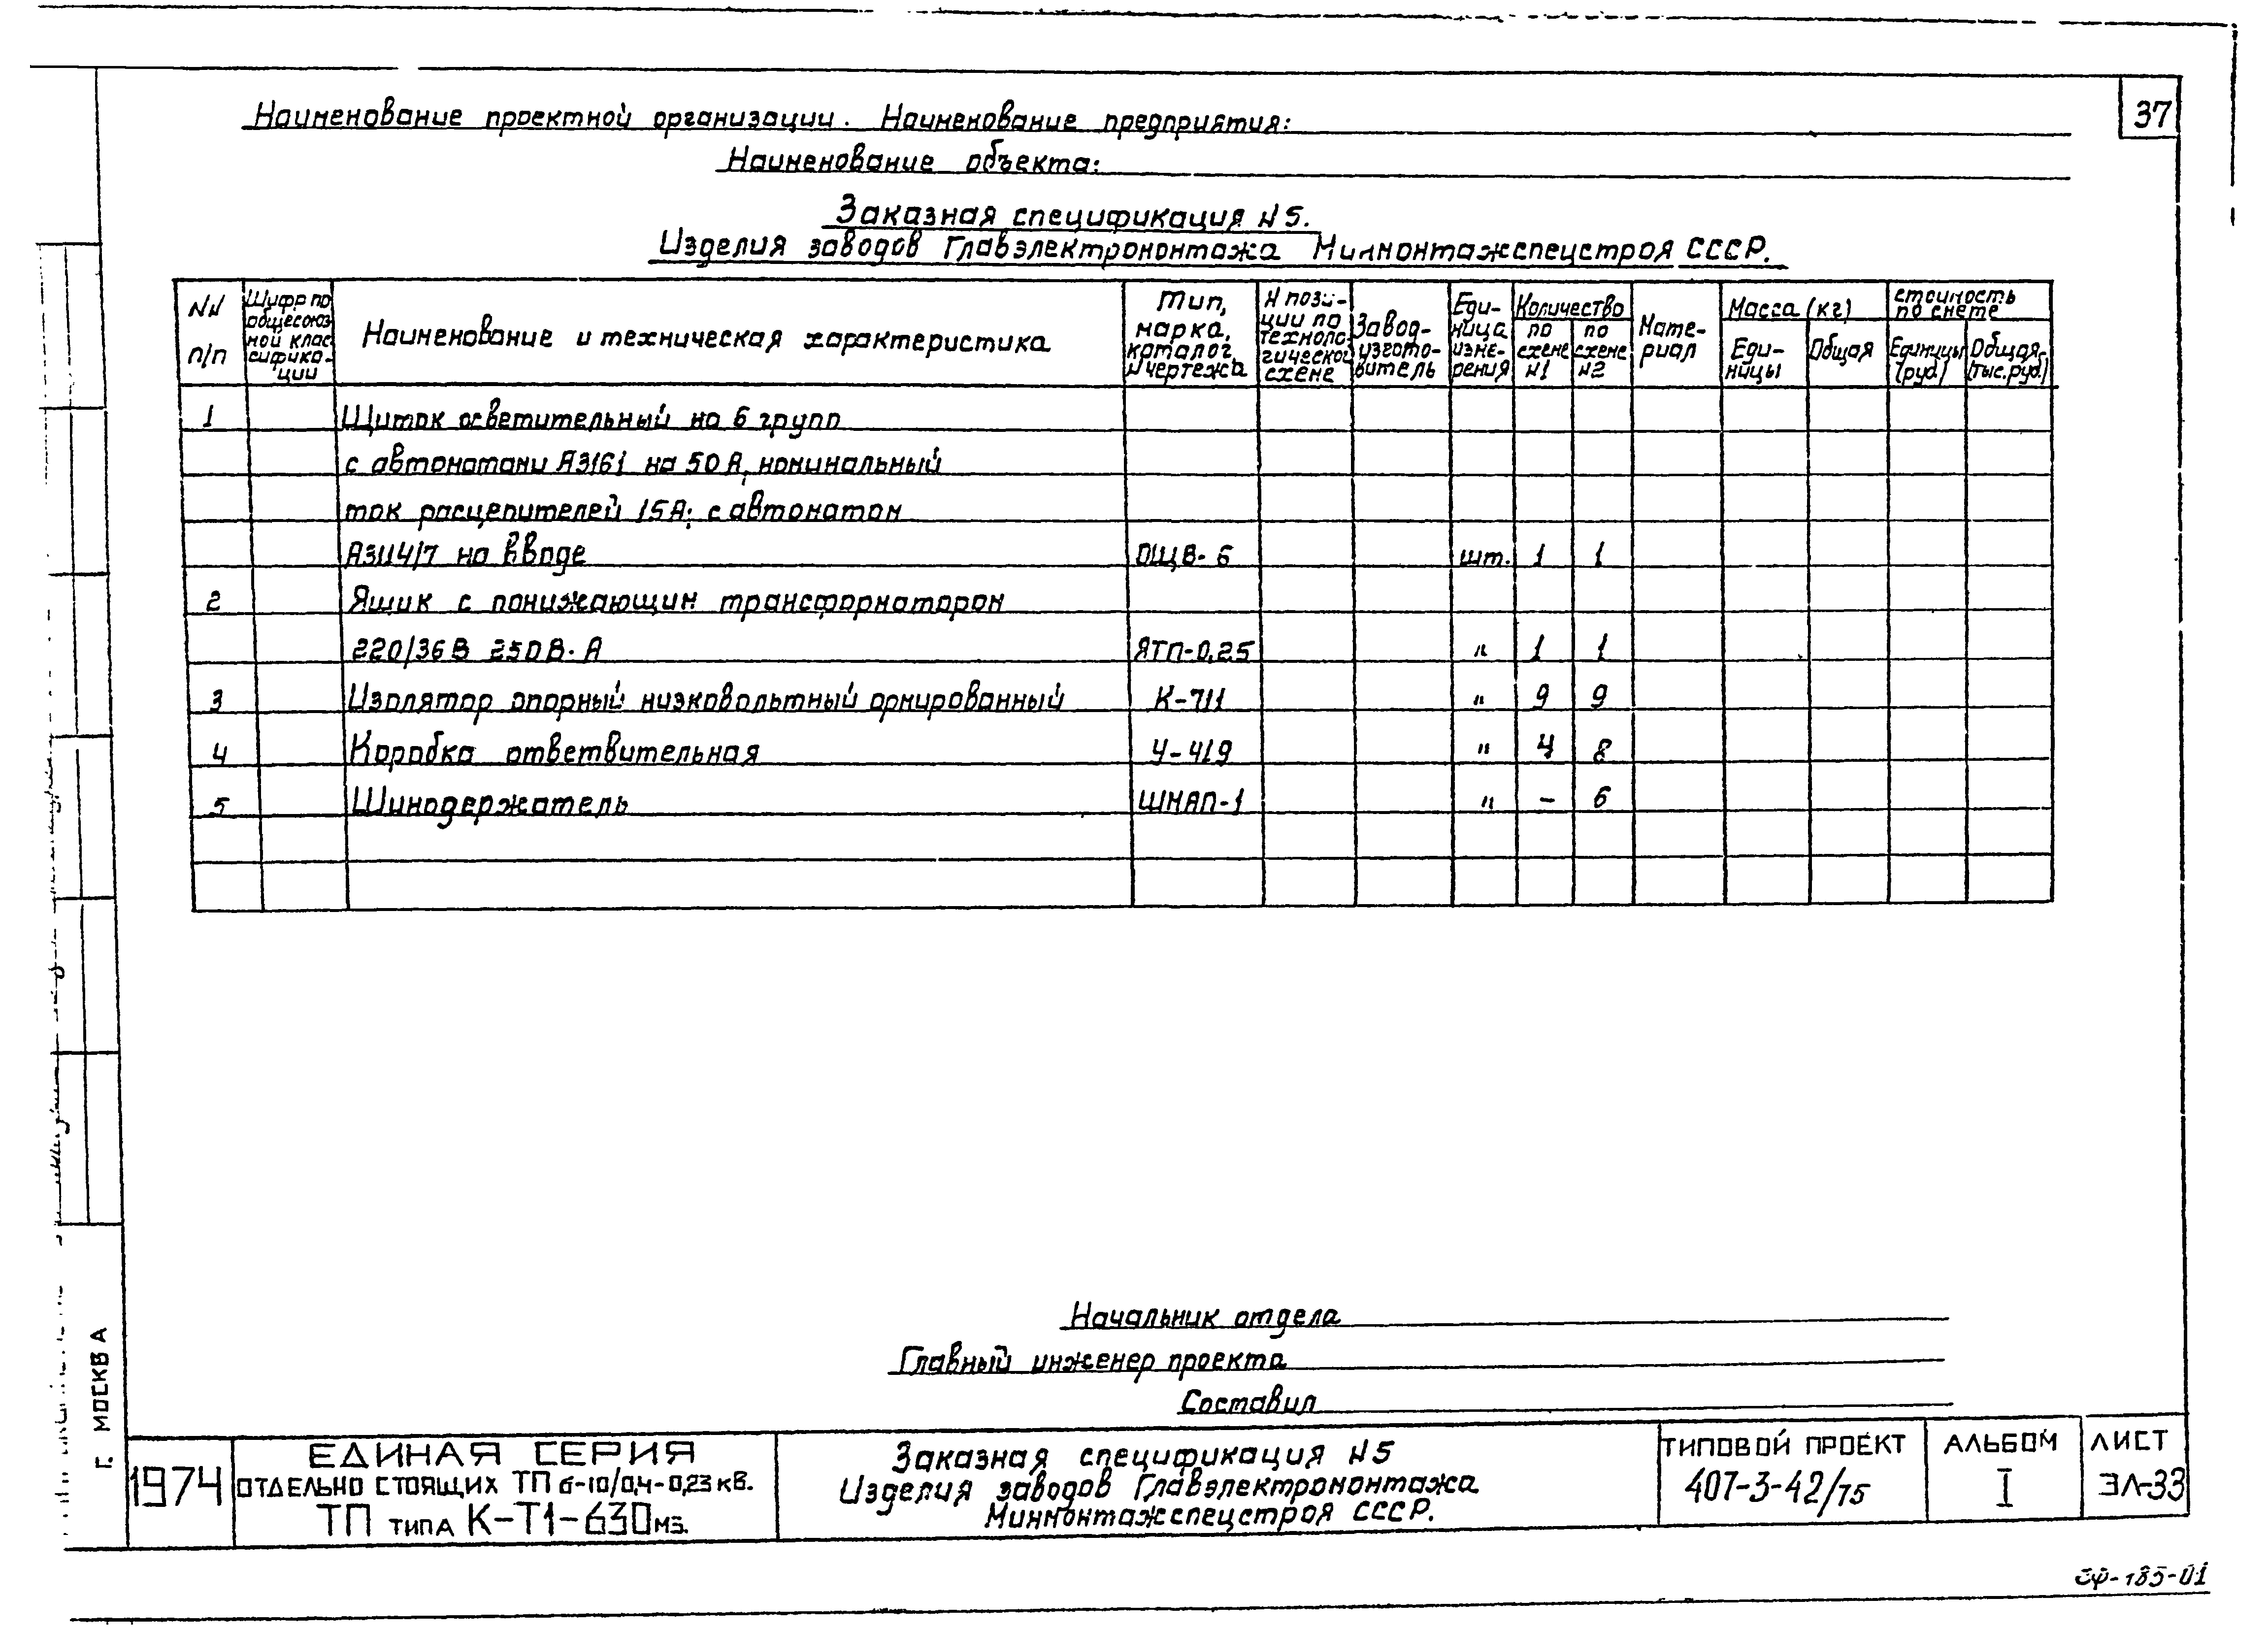 37
Наименование проектной организации. Наименование предприятия:
Наименование объекта:
Заказная спецификация N5.
Изделия заводов Главэлектромонтажа Минмонтажспецстроя СССР.
NN п/п
Шифр по общесоюзной классификации
Наименование и техническая характеристика
Тип, марка, каталог, N чертежа
N позиции по технологической схеме
Завод-изготовитель
Единица измерения
Количество
по схеме N1
по схеме N2
Материал
Масса (кг)
Единицы
Общая
Стоимость по смете
Единицы (руб)
Общая (тыс.руб.)
1 Щиток осветительный на 6 групп
с автоматами А3161 на 50А, номинальный
ток расцепителей 15А; с автоматом
А3114/7 на вводе ОЩВ-6 шт. 1 1
2 Ящик с понижающим трансформатором
220/36В 250В·А ЯТП-0,25 " 1 1
3 Изолятор опорный низковольтный армированный К-711 " 9 9
4 Коробка ответвительная У-419 " 4 8
5 Шинодержатель ШНАП-1 " - 6
Начальник отдела
Главный инженер проекта
Составил
г. МОСКВА
1974
ЕДИНАЯ СЕРИЯ
ОТДЕЛЬНО СТОЯЩИХ ТП 6-10/0,4-0,23 кВ.
ТП ТИПА К-Т1-630 М3.
Заказная спецификация N5
Изделия заводов Главэлектромонтажа
Минмонтажспецстроя СССР.
ТИПОВОЙ ПРОЕКТ
407-3-42/75
АЛЬБОМ
I
ЛИСТ
ЭЛ-33
СФ-185-01